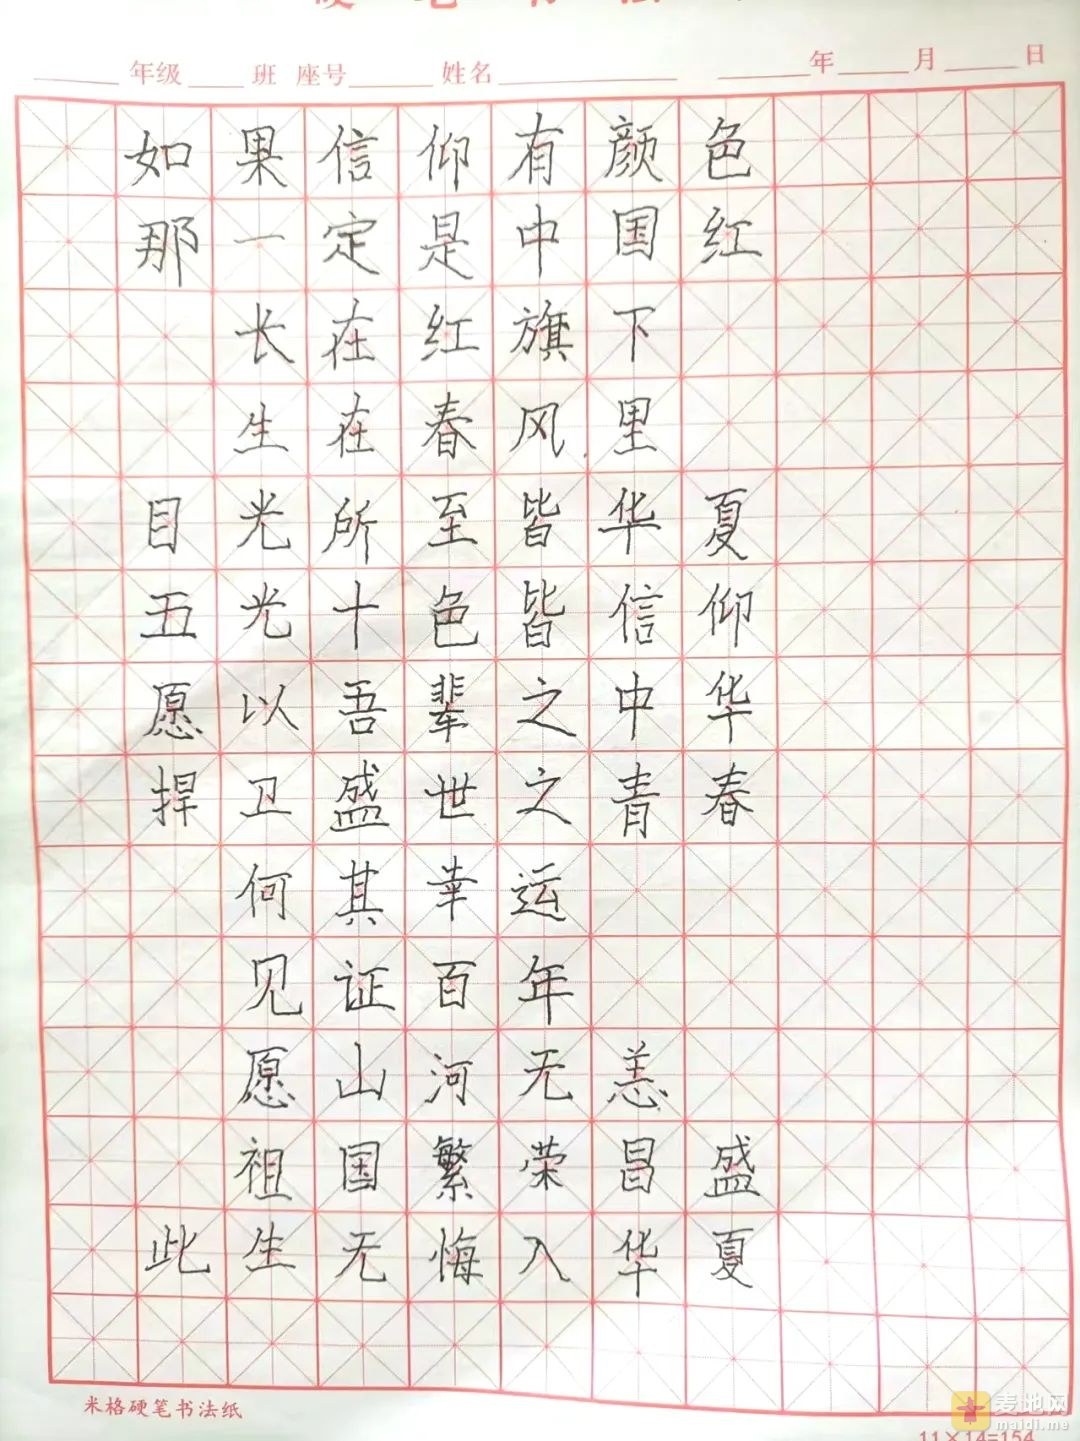 年级 班 座号 姓名 年 月 日
如果信仰有颜色
那一定是中国红
长在红旗下
生在春风里
目光所至皆华夏
五光十色皆信仰
愿以吾辈之中华
捍卫盛世之青春
何其幸运
见证百年
愿山河无恙
祖国繁荣昌盛
此生无悔入华夏
米格硬笔书法纸
11×14=154
麦地网
maidi.me